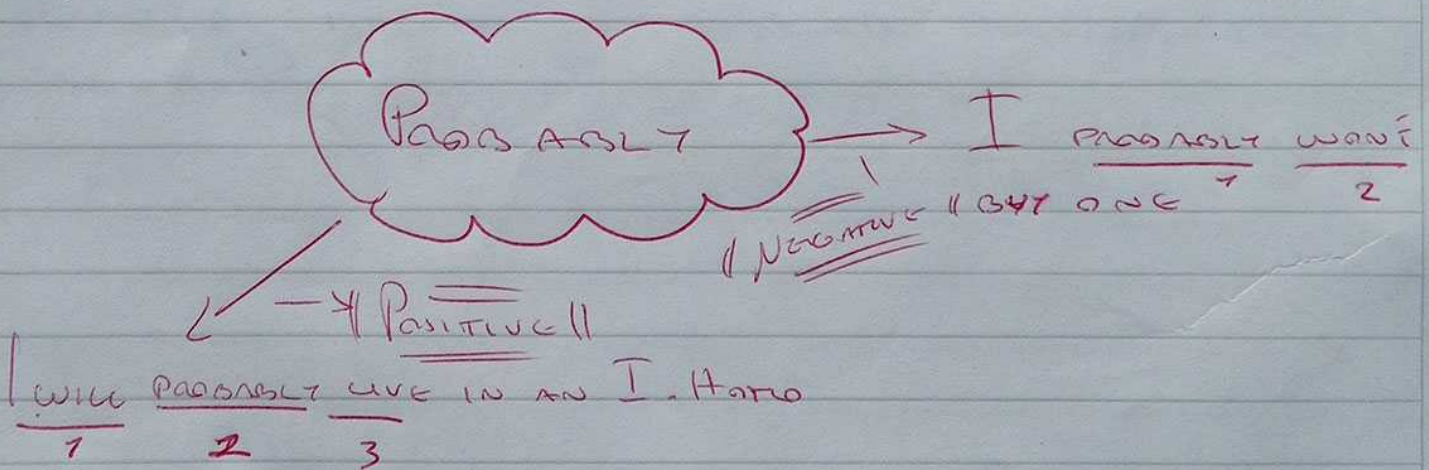 PROBABLY
I PROBABLY WON'T
1 2
"NEGATIVE" BUY ONE
"POSITIVE"
I WILL PROBABLY LIVE IN AN I. HOTEL
1 2 3